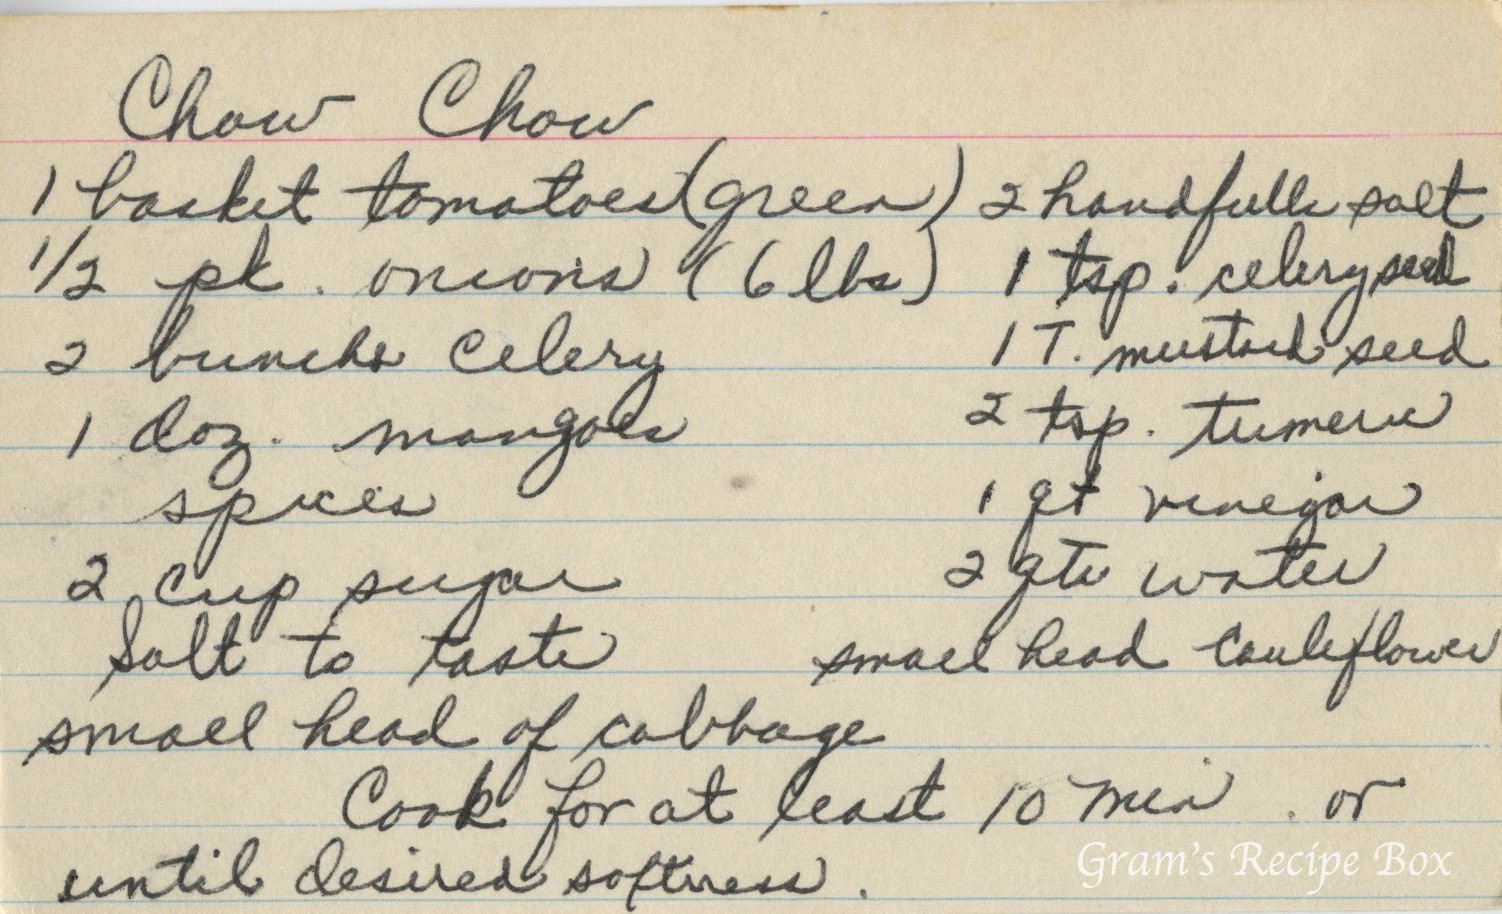 Chow Chow
1 basket tomatoes (green)
1/2 pk. onions (6 lbs)
2 bunchs celery
1 doz. mangoes
spices
2 cup sugar
Salt to taste
small head of cabbage
2 handfulls salt
1 tsp. celery seed
1 T. mustard seed
2 tsp. tumeric
1 qt vinegar
2 qts water
small head cauleflower
Cook for at least 10 min. or
until desired softness.
Gram's Recipe Box